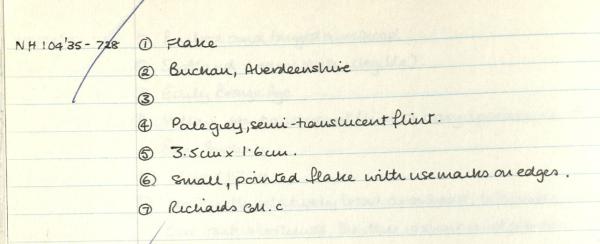 NH 104'35-728 ① Flake
② Buchan, Aberdeenshire
③
④ Pale grey, semi-translucent flint.
⑤ 3.5cm x 1.6cm.
⑥ Small, pointed flake with use marks on edges.
⑦ Richards Coll. C